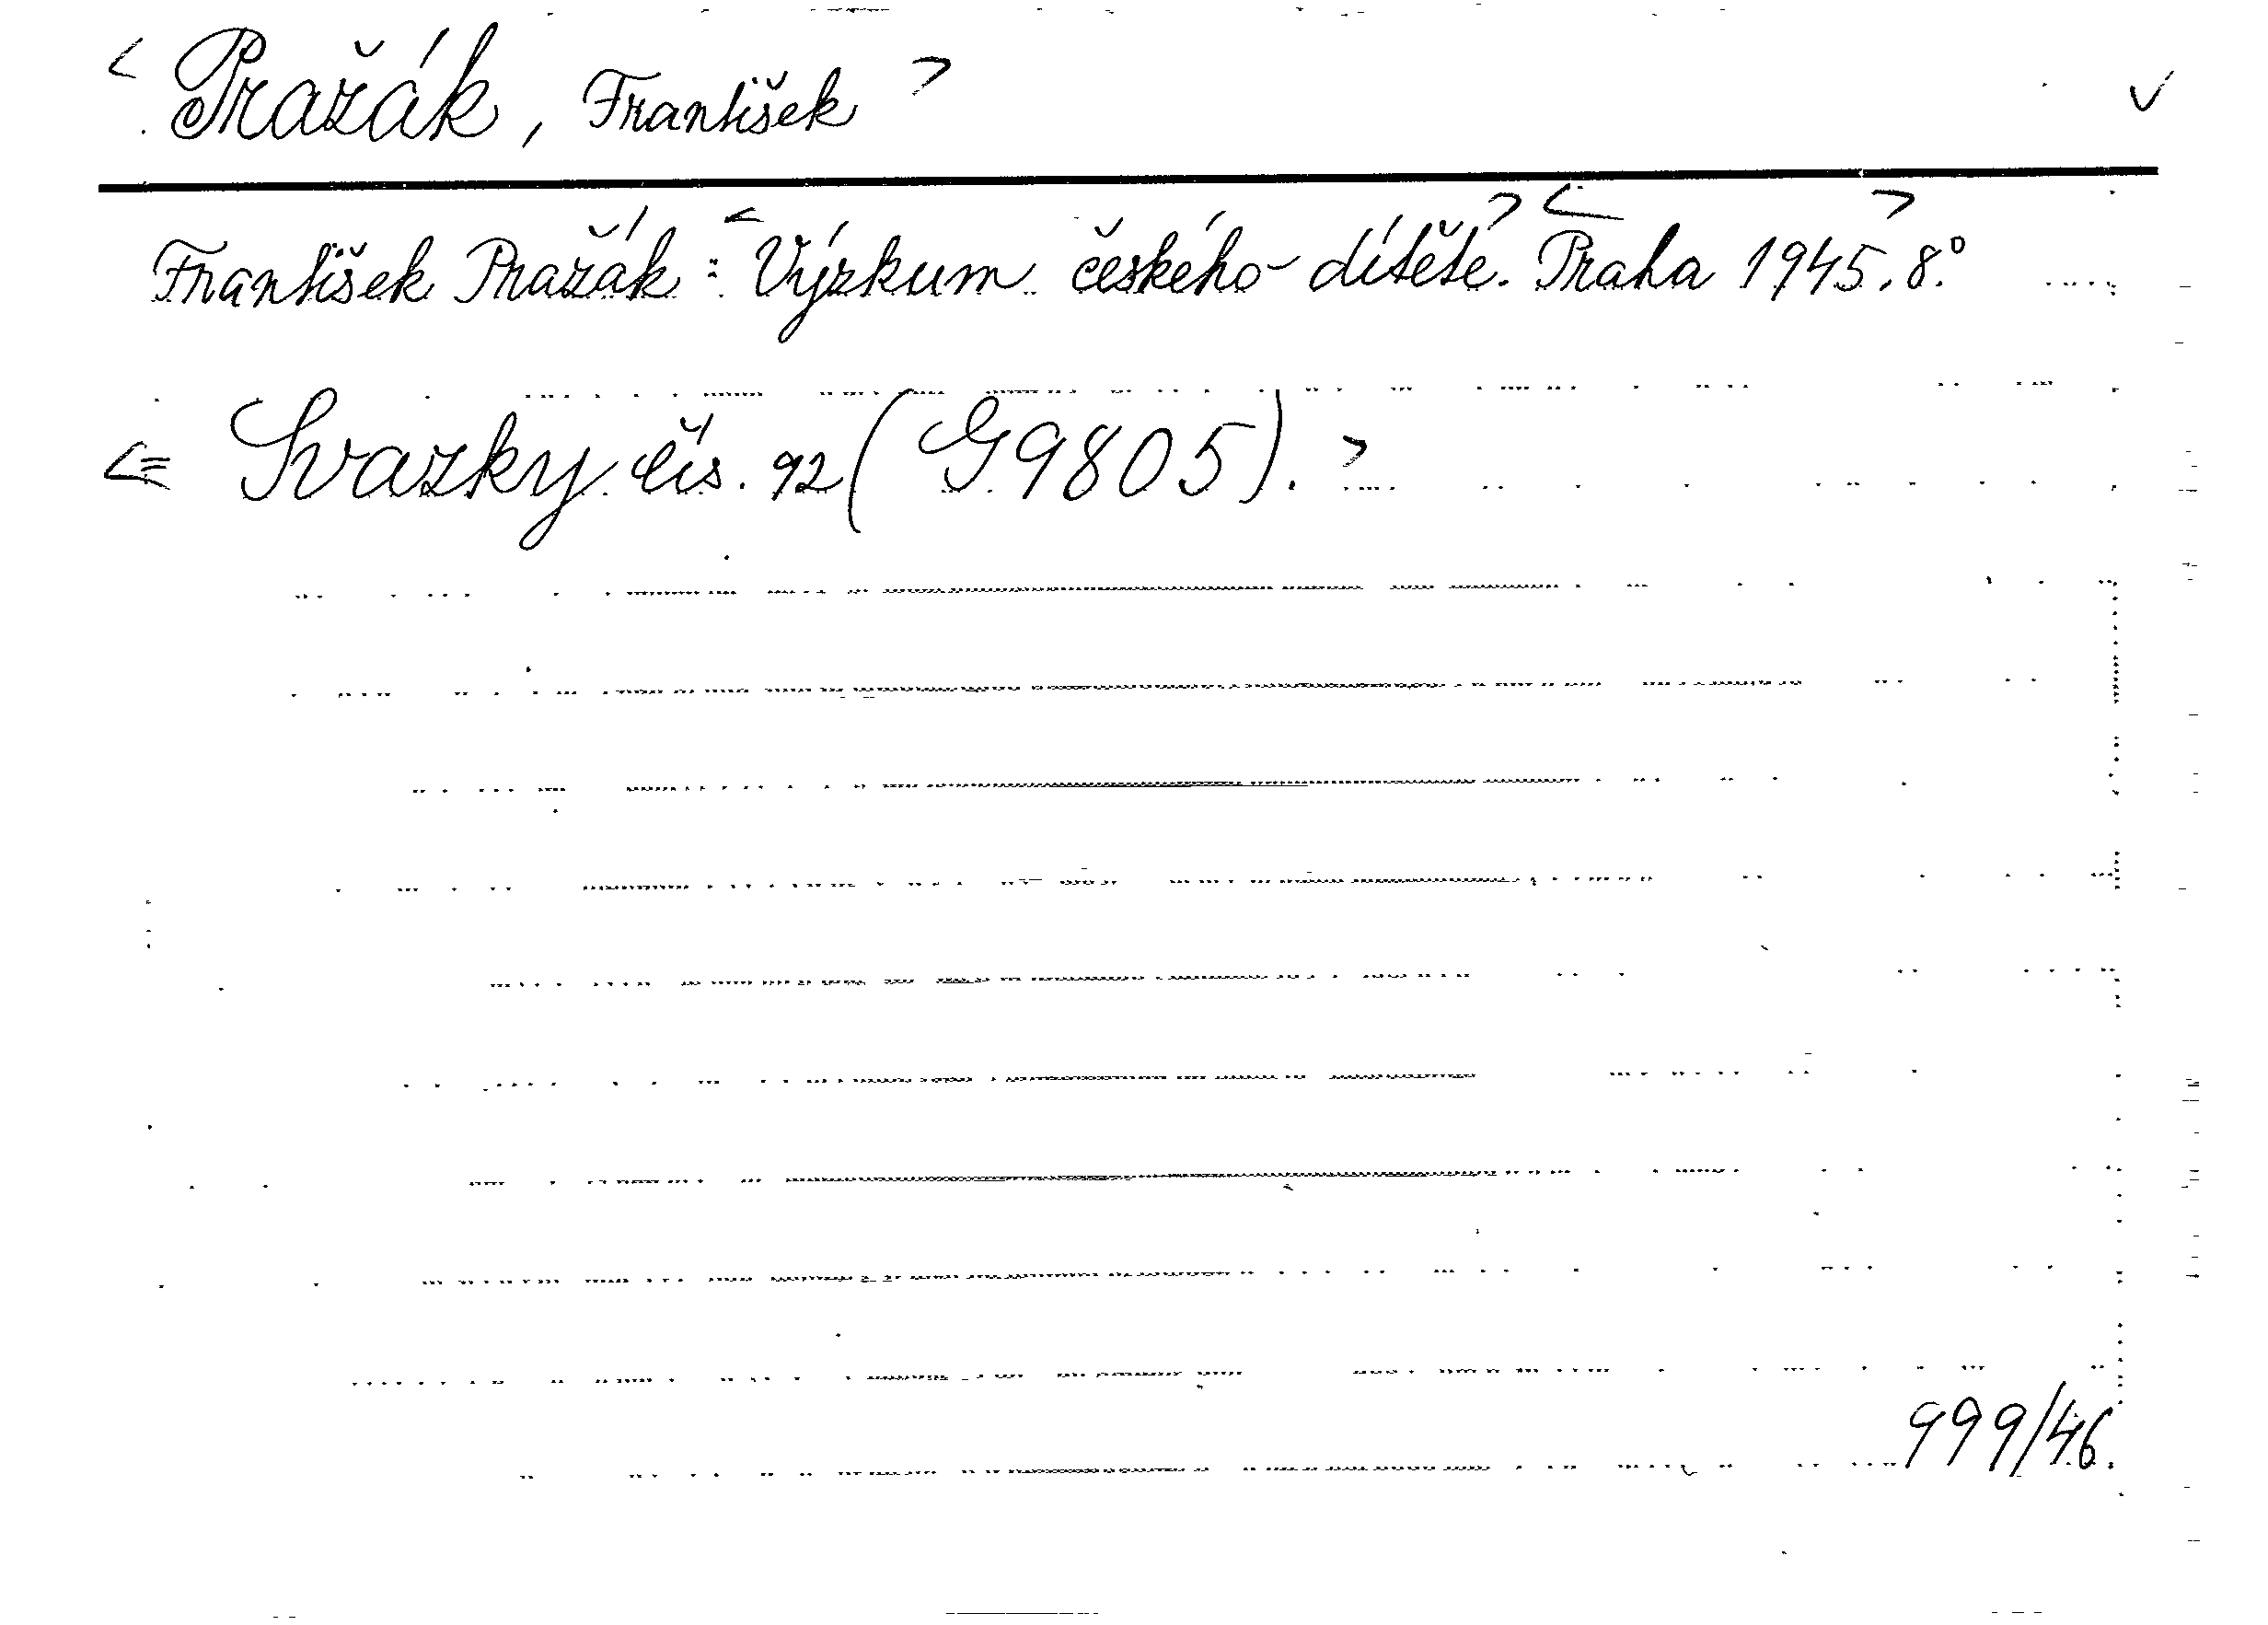 < Pražák, František > ✓
František Pražák: <Výzkum českého dítěte.> <Praha> 1945. 8.°
<= Svazky čís. 92 (G 9805). >
999/46.